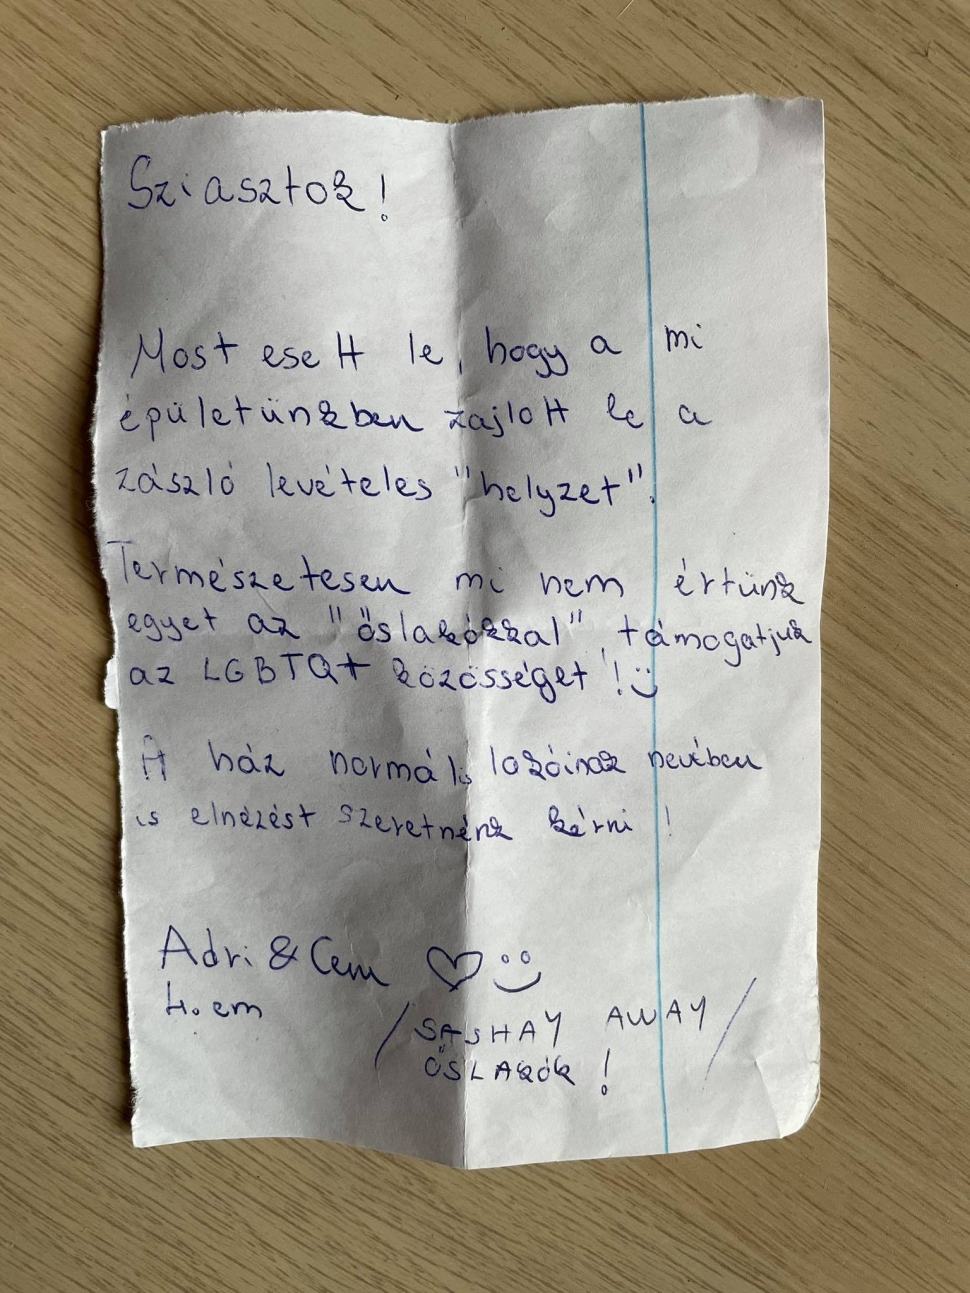 Sziasztok!
Most esett le, hogy a mi
épületünkben zajlott le a
zászló levételes "helyzet".
Természetesen mi nem értünk
egyet az "őslakókkal", támogatjuk
az LGBTQ+ közösséget!
A ház normális lakóinak nevében
is elnézést szeretnénk kérni!
Adri & Cem
4. em
/SASHAY AWAY/
ŐSLAKÓK!